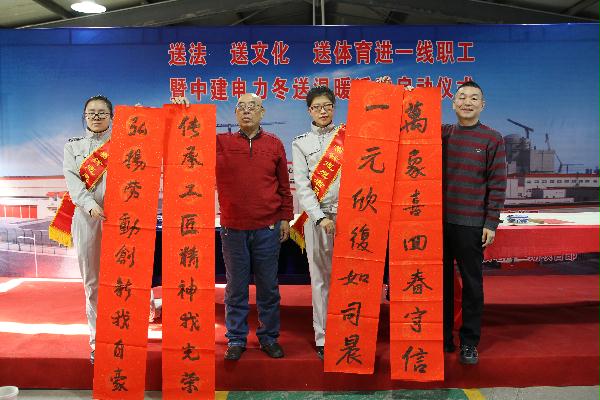 送法 送文化 送体育进一线职工
暨中建电力冬送温暖
启动仪式
弘揚勞動創新我自豪
传承工匠精神我光荣
一元欣復如司晨
萬象喜回春守信